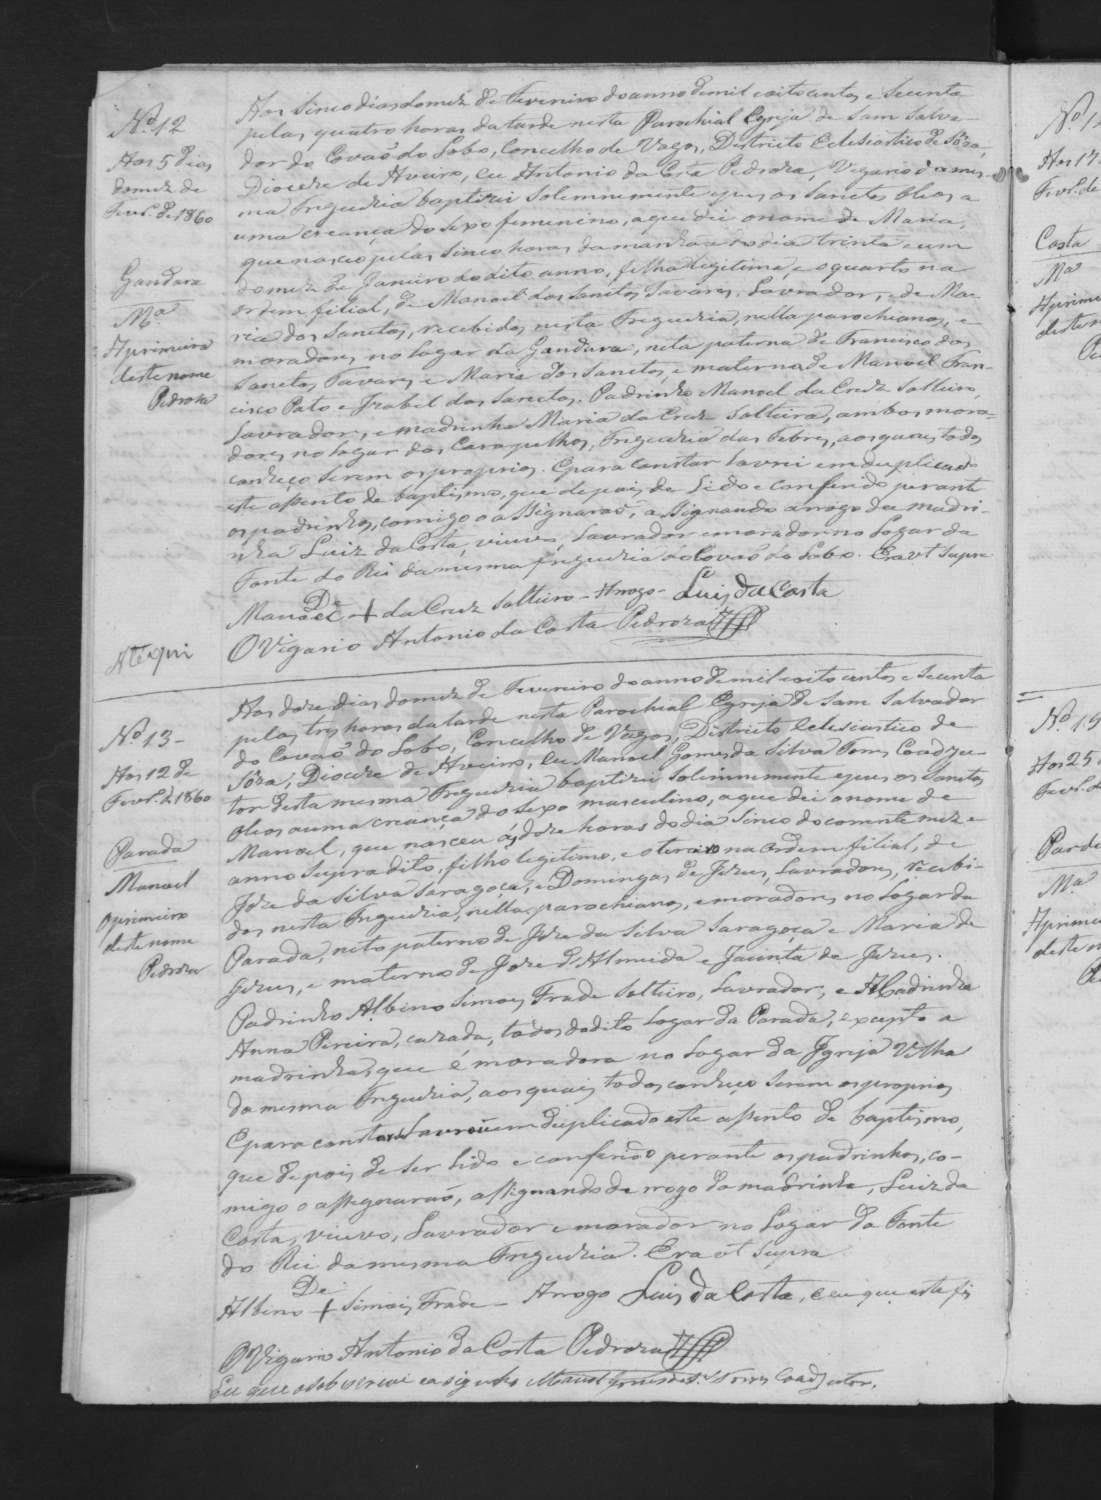 Nº 12
Aos 5 dias
do mez de
Fevrº. de 1860
Gandara
Mª
A primeira
deste nome
Pedroza
Aos sinco dias do mez de Fevereiro do anno de mil oito centos e secenta
pelas quatro horas da tarde nesta Parochial Egreja de Sam Salva-
dor do Covaõ do Lobo, Concelho de Vagos, Districto Eclesiastico de Sôza,
Diocere de Aveiro, eu Antonio da Costa Pedroza, Vigario da mes-
ma Freguezia baptizei solemnemente e pus os Sanctos Oleos a
uma creança do sexo femenino, a que dei o nome de Maria,
que nasceo pelas sinco horas da manhãa do dia trinta e um
do mez de Janeiro do dito anno, filha legitima, e o quarto na
ordem filial, de Manoel dos Sanctos Tavares, Lavrador, e de Ma-
ria dos Sanctos, recebidos nesta Freguezia, nella parochianos, e
moradores no Logar da Gandara, neta paterna de Francisco dos
Sanctos Tavares e Maria dos Sanctos, e materna de Manoel Fran-
cisco Pato e Izabel dos Sanctos. Padrinho Manoel da Cruz Solteiro,
Lavrador, e madrinha Maria da Cruz Solteira, ambos mora-
dores no Logar dos Carapelhos, Freguezia das Febres, aos quaes todos
conheço serem os proprios. E para constar lavrei em duplicado
este assento de baptismo, que depois de Lido e conferido perante
os padrinhos, comigo o assignaraõ, assignando a rogo da madri-
nha Luiz da Costa, viuvo, Lavrador e morador no Logar da
Fonte do Rei da mesma freguezia do Covaõ do Lobo. Era ut supra
De
Manoel + da Cruz Solteiro - Arrogo - Luis da Costa
O Vigario Antonio da Costa Pedroza
Nº 13 -
Aos 12 de
Fevrº. d. 1860
Parada
Manoel
O primeiro
deste nome
Pedroza
Aos doze dias do mez de Fevereiro do anno de mil oito centos e secenta
pelas tres horas da tarde nesta Parochial Egreja de Sam Salvador
do Covaõ do Lobo, Concelho de Vagos, Districto Eclesiastico de
Sôza, Diocere de Aveiro, eu Manoel Gomes da Silva Torres Coadju-
tor desta mesma Freguezia baptizei solemnemente e pus os Sanctos
Oleos a uma creança do sexo masculino, a que dei o nome de
Manoel, que nasceu ás doze horas do dia sinco do corrente mez e
anno supra dito, filho legitimo, e o terceiro na ordem filial, de
Joze da Silva Saragoça, e Domingas de Jezus, Lavradores, recebi-
dos nesta Freguezia, nella parochianos, e moradores no Logar da
Parada, neto paterno de Joze da Silva Saragoça e Maria de
Jezus, e materno de Joze d'Almeida e Jacinta de Jezus.
Padrinho Albino Simoes Frade Solteiro, Lavrador, e Madrinha
Anna Pereira, cazada, todos do dito Logar da Parada, excepto a
madrinha, que é moradora no Logar da Igreja Velha
da mesma Freguezia, aos quais todos conheço serem os proprios
E para constar se lavrou em duplicado este assento de baptismo,
que depois de ser Lido e conferido perante os padrinhos, co-
migo o assignaraõ, assignando de rogo da madrinha, Luiz da
Costa, viuvo, Lavrador e morador no Logar da Fonte
do Rei da mesma Freguezia. Era ut supra
De
Albino + Simois Frade - Arrogo Luis da Costa, e eu que este fis
O Vigario Antonio da Costa Pedroza
Eu que o sobescrevi e asigno Manoel Gomes da Sª. Torres Coadjutor.
Costa
Mª